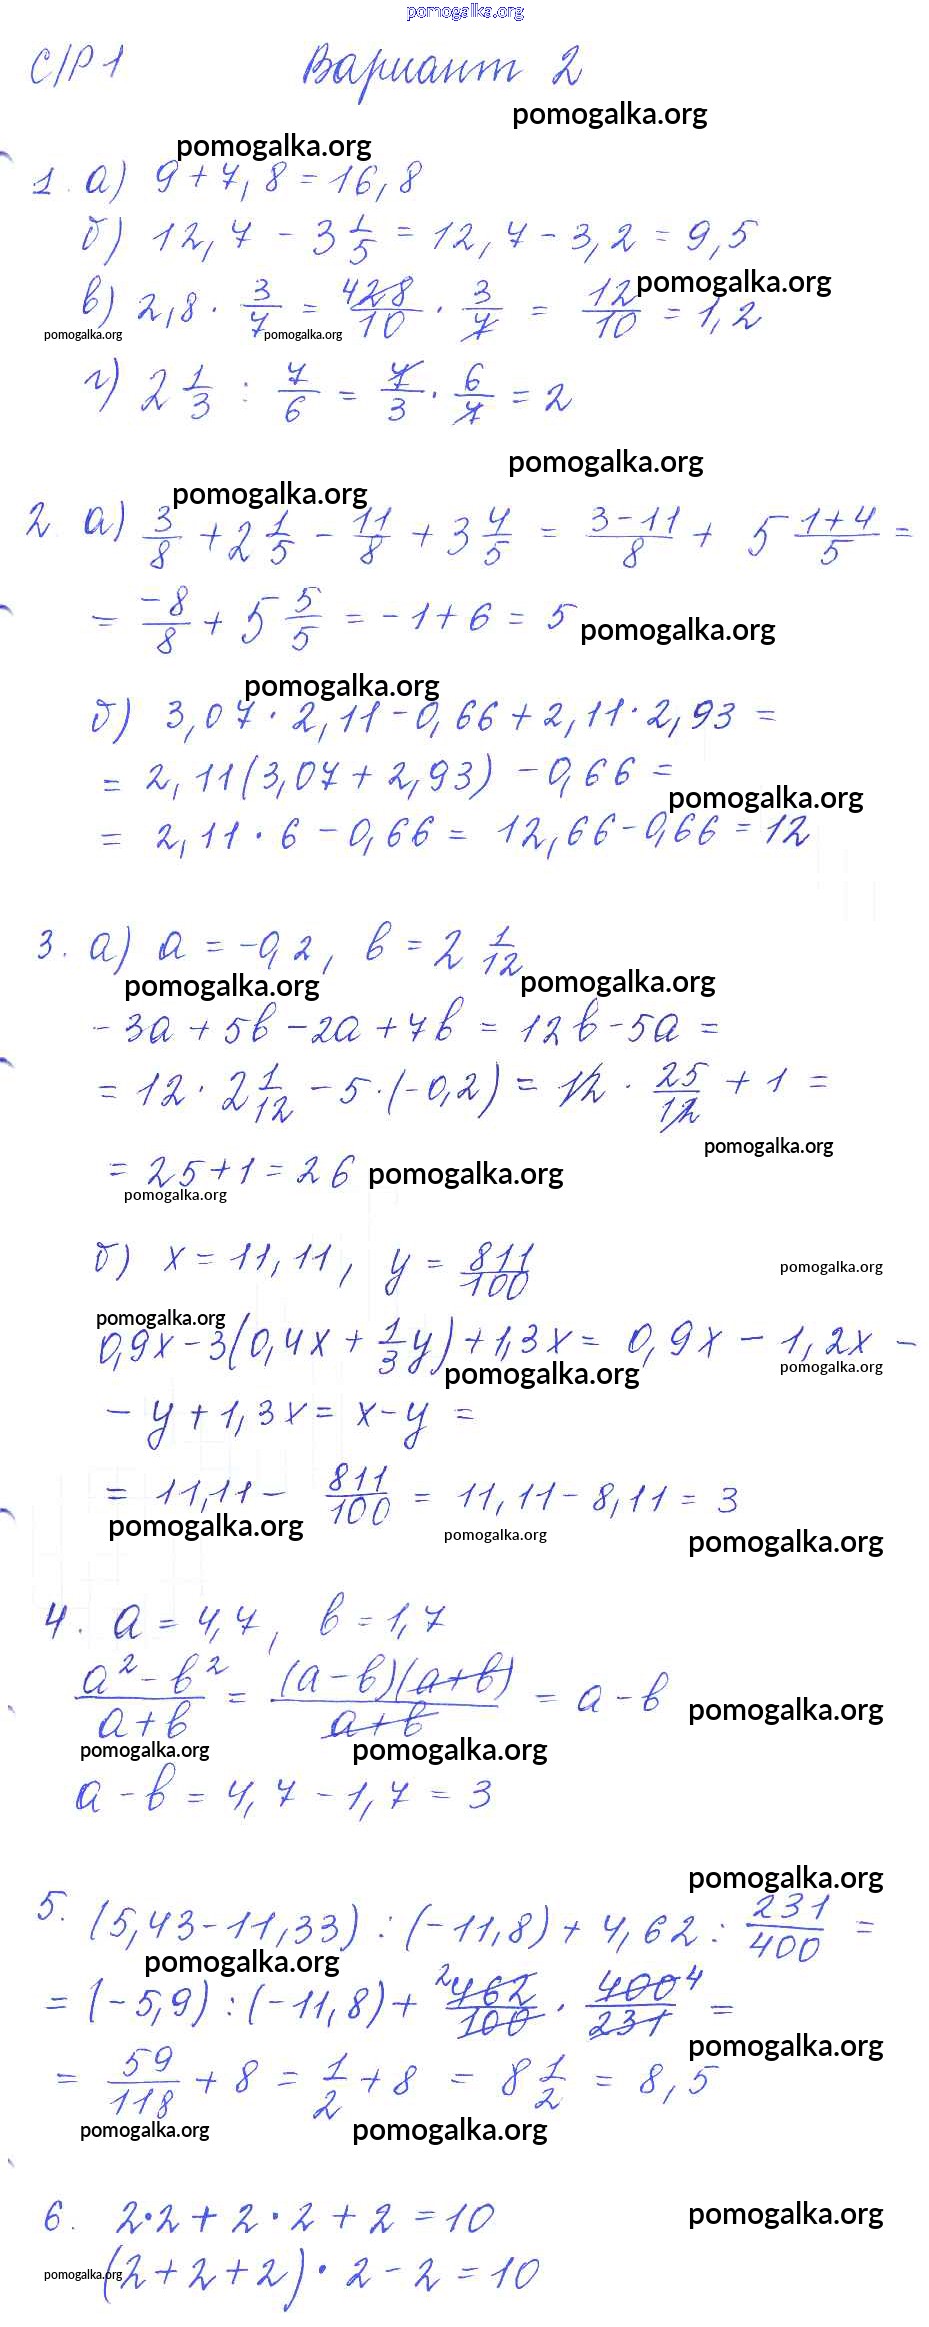 pomogalka.org
С/Р 1 Вариант 2
pomogalka.org
pomogalka.org
1. а) 9 + 7,8 = 16,8
б) 12,7 - 3 1/5 = 12,7 - 3,2 = 9,5
pomogalka.org
в) 2,8 · 3/7 = 428/10 · 3/7 = 12/10 = 1,2
pomogalka.org pomogalka.org
г) 2 1/3 : 7/6 = 7/3 · 6/7 = 2
pomogalka.org
pomogalka.org
2. а) 3/8 + 2 1/5 - 11/8 + 3 4/5 = (3-11)/8 + 5 (1+4)/5 =
= -8/8 + 5 5/5 = -1 + 6 = 5
pomogalka.org
pomogalka.org
б) 3,07 · 2,11 - 0,66 + 2,11 · 2,93 =
= 2,11 (3,07 + 2,93) - 0,66 =
pomogalka.org
= 2,11 · 6 - 0,66 = 12,66 - 0,66 = 12
3. а) a = -0,2, b = 2 1/12
pomogalka.org pomogalka.org
- 3a + 5b - 2a + 7b = 12b - 5a =
= 12 · 2 1/12 - 5 · (-0,2) = 12 · 25/12 + 1 =
pomogalka.org
= 25 + 1 = 26 pomogalka.org
pomogalka.org
б) x = 11,11, y = 811/100
pomogalka.org
pomogalka.org
0,9x - 3(0,4x + 1/3 y) + 1,3x = 0,9x - 1,2x -
pomogalka.org pomogalka.org
- y + 1,3x = x - y =
= 11,11 - 811/100 = 11,11 - 8,11 = 3
pomogalka.org pomogalka.org pomogalka.org
4. a = 4,7, b = 1,7
(a² - b²)/(a + b) = (a - b)(a + b)/(a + b) = a - b
pomogalka.org
pomogalka.org pomogalka.org
a - b = 4,7 - 1,7 = 3
pomogalka.org
5. (5,43 - 11,33) : (-11,8) + 4,62 : 231/400 =
pomogalka.org
= (-5,9) : (-11,8) + 2 462/100 · 400 4/231 =
pomogalka.org
= 59/118 + 8 = 1/2 + 8 = 8 1/2 = 8,5
pomogalka.org pomogalka.org
6. 2·2 + 2·2 + 2 = 10
pomogalka.org
pomogalka.org
(2 + 2 + 2) · 2 - 2 = 10